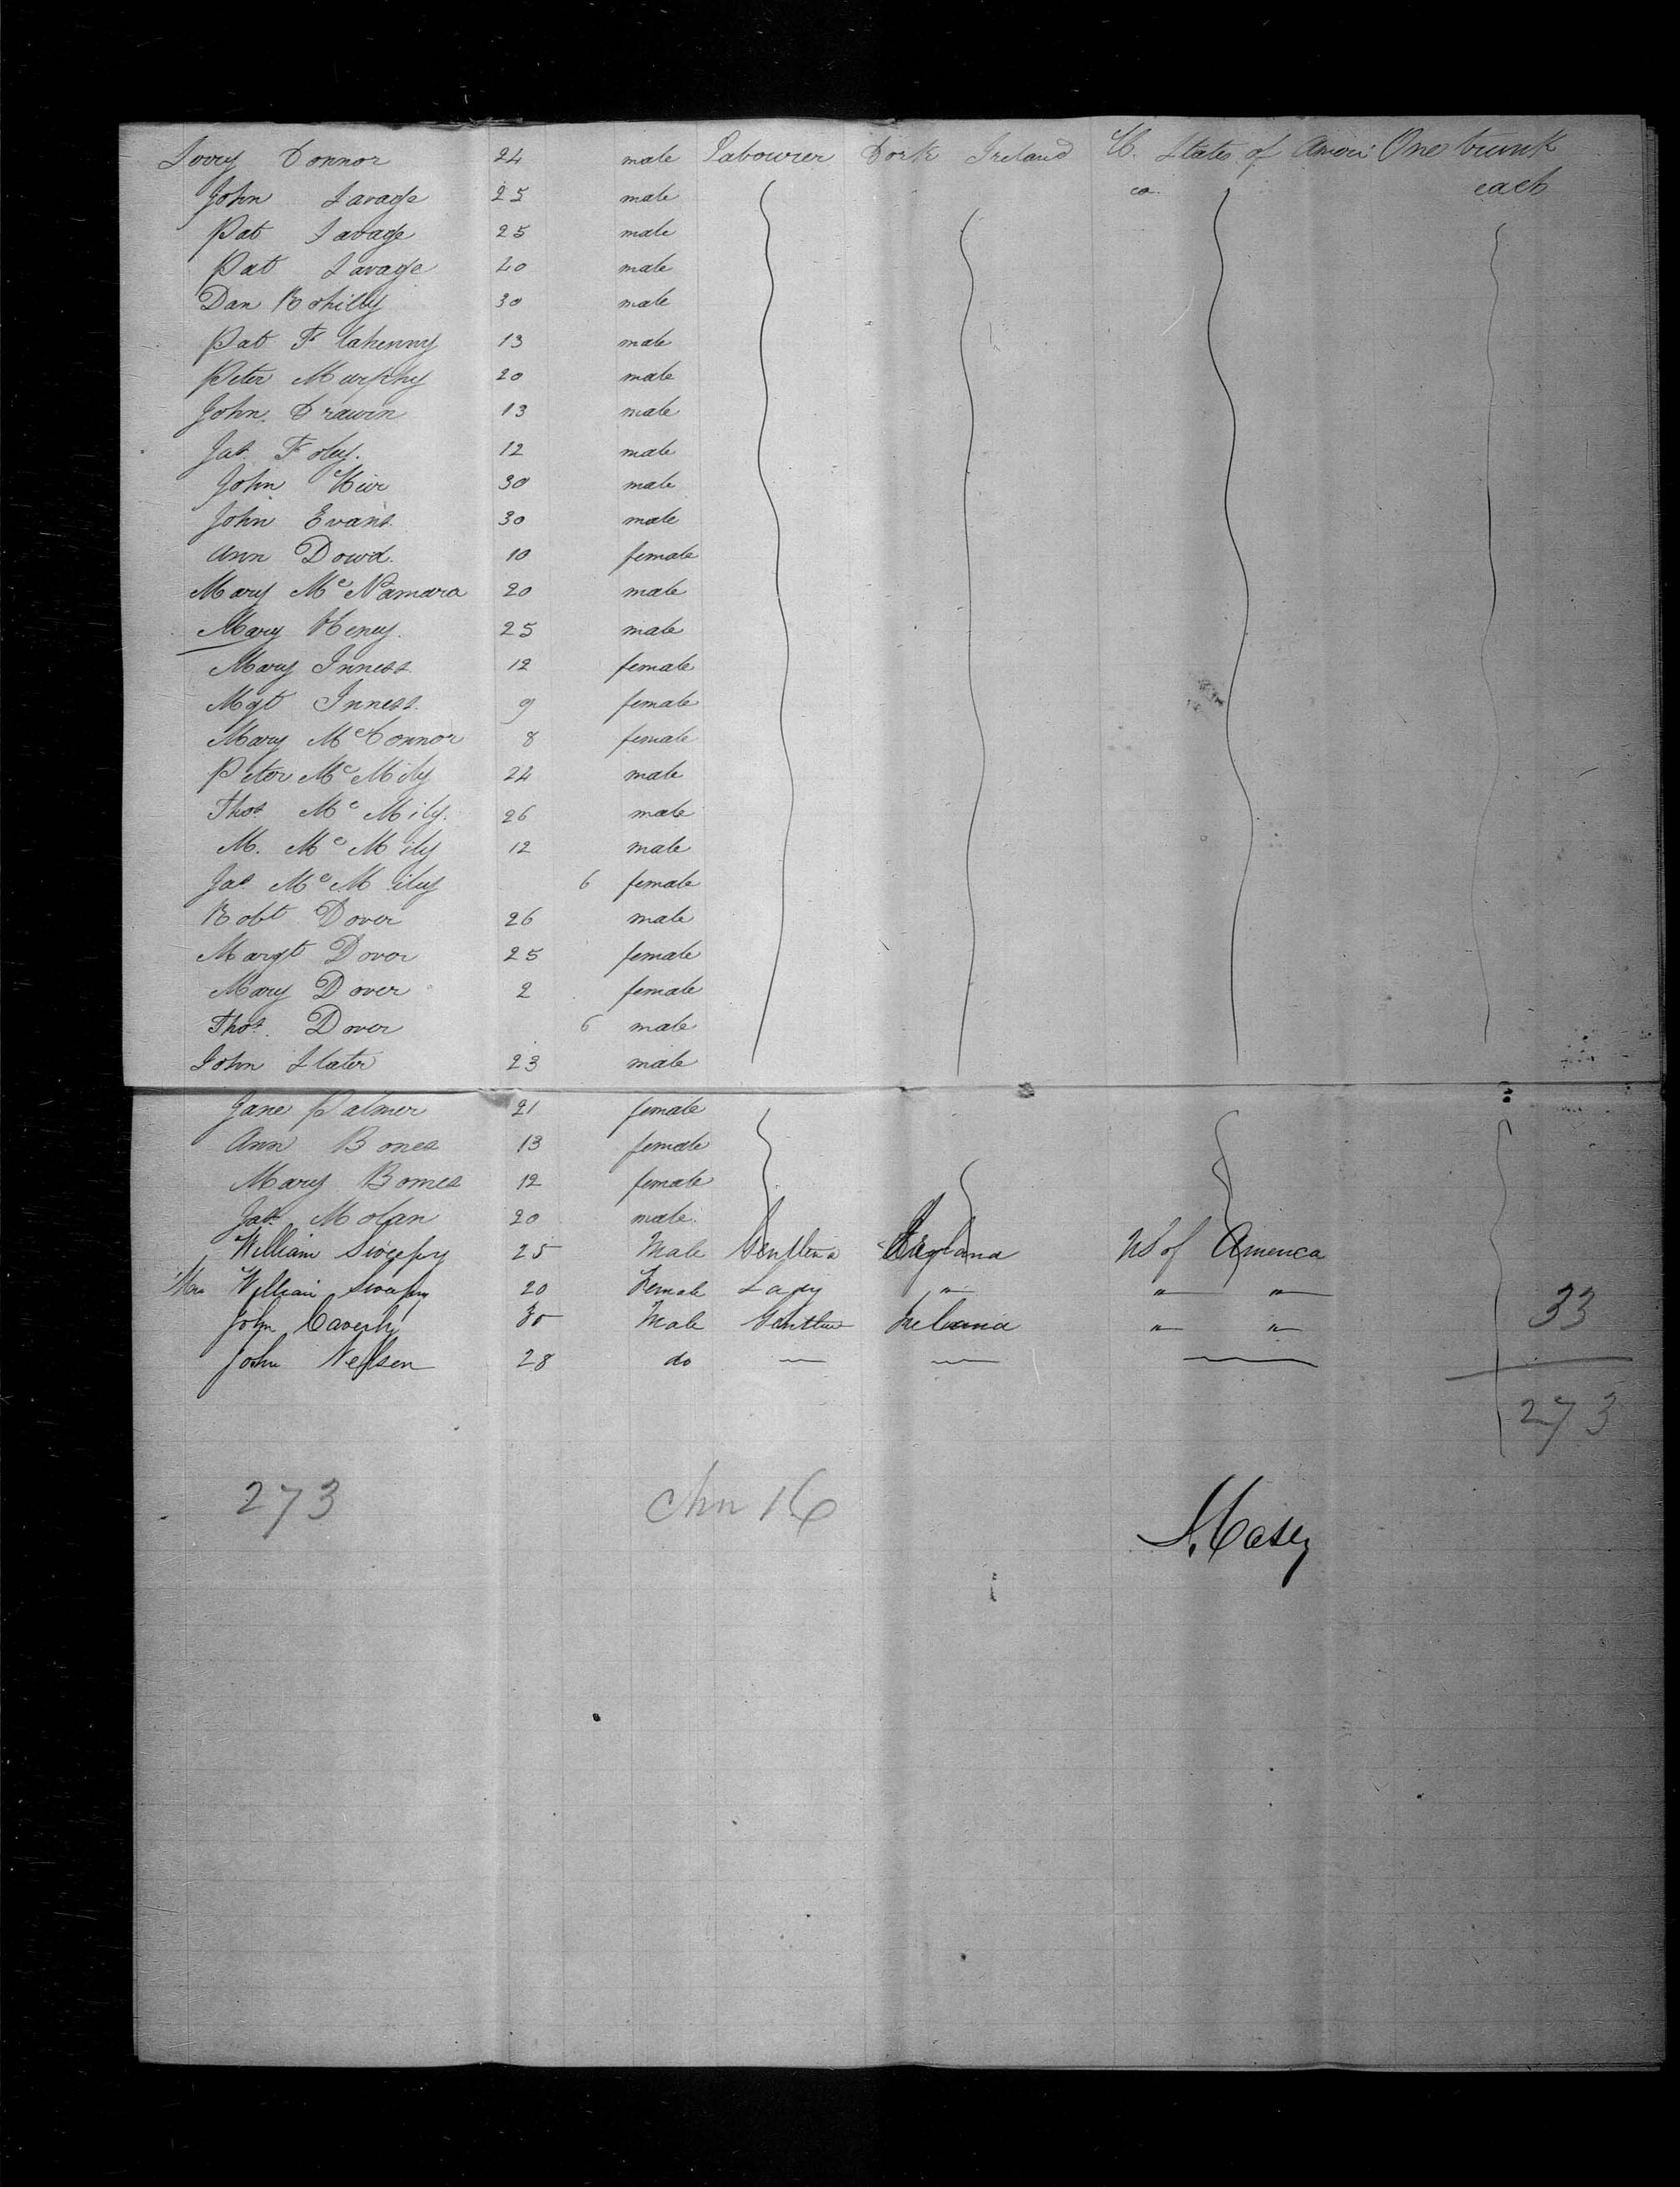 Jorry Connor 24 male Labourer Cork Ireland U. States of Ameri One trunk
John Savage 25 male ca. each
Pat Savage 25 male
Pat Savage 20 male
Dan Rohilly 30 male
Pat Flahenny 13 male
Peter Murphy 20 male
John Crawin 13 male
Jas. Foley. 12 male
John Keir 30 male
John Evans 30 male
Ann Dowd. 10 female
Mary McNamara 20 male
Mary Heney. 25 male
Mary Inness 12 female
Mgt Inness. 9 female
Mary McConnor 8 female
Peter McMily 24 male
Thos McMily. 26 male
M. McMily 12 male
Jas McMily 6 female
Robt Dover 26 male
Margt Dover 25 female
Mary Dover 2 female
Thos. Dover 6 male
John Slater 23 male
Jane Palmer 21 female
Ann Bones 13 female
Mary Bomes 12 female
Jas. Molan 20 male.
William 25 Male England US of America
Mrs William 20 Female Lady " " "
John 30 Male Ireland " " 33
John Neilsen 28 do — — —
273
273 Chn 16
J. Casey